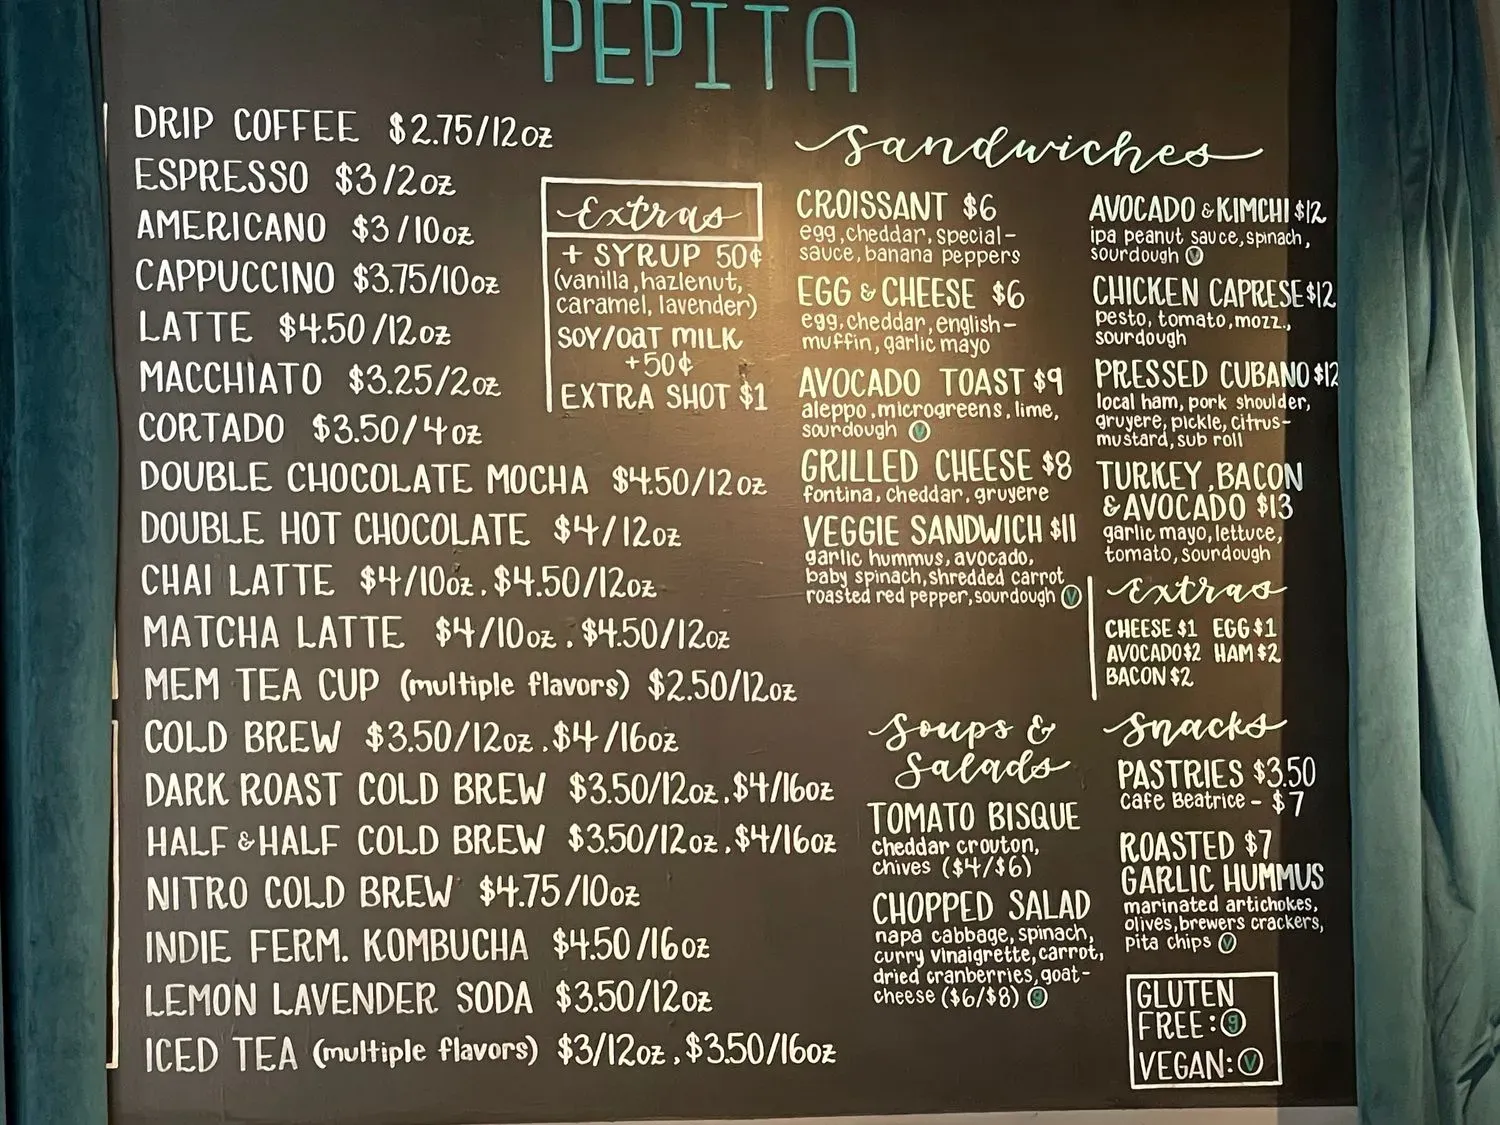 PEPITA
DRIP COFFEE $2.75/12oz
ESPRESSO $3/2oz
AMERICANO $3/10oz
CAPPUCCINO $3.75/10oz
LATTE $4.50/12oz
MACCHIATO $3.25/2oz
CORTADO $3.50/4oz
DOUBLE CHOCOLATE MOCHA $4.50/12oz
DOUBLE HOT CHOCOLATE $4/12oz
CHAI LATTE $4/10oz, $4.50/12oz
MATCHA LATTE $4/10oz, $4.50/12oz
MEM TEA CUP (multiple flavors) $2.50/12oz
COLD BREW $3.50/12oz, $4/16oz
DARK ROAST COLD BREW $3.50/12oz, $4/16oz
HALF & HALF COLD BREW $3.50/12oz, $4/16oz
NITRO COLD BREW $4.75/10oz
INDIE FERM. KOMBUCHA $4.50/16oz
LEMON LAVENDER SODA $3.50/12oz
ICED TEA (multiple flavors) $3/12oz, $3.50/16oz
Extras
+ SYRUP 50¢
(vanilla, hazlenut,
caramel, lavender)
SOY/OAT MILK
+50¢
EXTRA SHOT $1
Sandwiches
CROISSANT $6
egg, cheddar, special-
sauce, banana peppers
EGG & CHEESE $6
egg, cheddar, english-
muffin, garlic mayo
AVOCADO TOAST $9
aleppo, microgreens, lime,
sourdough V
GRILLED CHEESE $8
fontina, cheddar, gruyere
VEGGIE SANDWICH $11
garlic hummus, avocado,
baby spinach, shredded carrot
roasted red pepper, sourdough V
AVOCADO & KIMCHI $12
ipa peanut sauce, spinach,
sourdough V
CHICKEN CAPRESE $12
pesto, tomato, mozz.,
sourdough
PRESSED CUBANO $12
local ham, pork shoulder,
gruyere, pickle, citrus-
mustard, sub roll
TURKEY, BACON
& AVOCADO $13
garlic mayo, lettuce,
tomato, sourdough
Extras
CHEESE $1 EGG $1
AVOCADO $2 HAM $2
BACON $2
Soups &
Salads
TOMATO BISQUE
cheddar crouton,
chives ($4/$6)
CHOPPED SALAD
napa cabbage, spinach,
curry vinaigrette, carrot,
dried cranberries, goat-
cheese ($6/$8) g
Snacks
PASTRIES $3.50
Cafe Beatrice - $7
ROASTED $7
GARLIC HUMMUS
marinated artichokes,
olives, brewers crackers,
pita chips V
GLUTEN
FREE: g
VEGAN: V